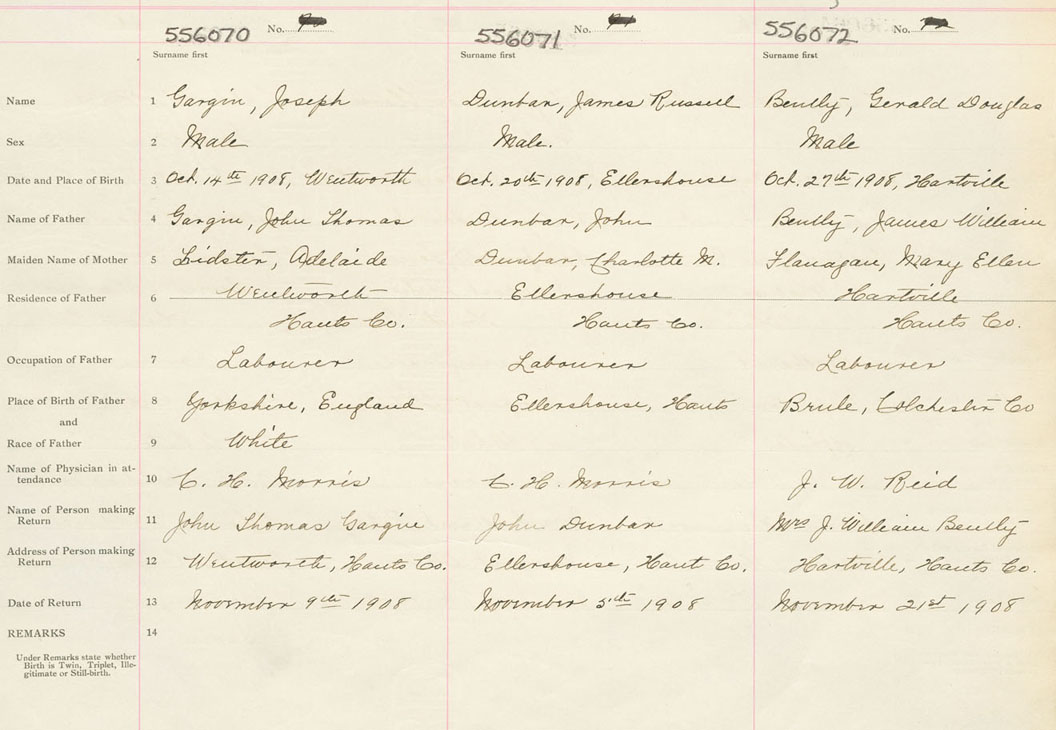 556070 No. 556071 No. 556072 No.
Surname first Surname first Surname first
Name 1 Gargin, Joseph Dunbar, James Russell Bently, Gerald Douglas
Sex 2 Male Male. Male
Date and Place of Birth 3 Oct. 14th 1908, Wentworth Oct. 20th 1908, Ellershouse Oct. 27th 1908, Hartville
Name of Father 4 Gargin, John Thomas Dunbar, John Bently, James William
Maiden Name of Mother 5 Lidster, Adelaide Dunbar, Charlotte M. Flanagan, Mary Ellen
Residence of Father 6 Wentworth Ellershouse Hartville
Hants Co. Hants Co. Hants Co.
Occupation of Father 7 Labourer Labourer Labourer
Place of Birth of Father 8 Yorkshire, England Ellershouse, Hants Brule, Colchester Co
and
Race of Father 9 White
Name of Physician in at-
tendance 10 C. H. Morris C. H. Morris J. W. Reid
Name of Person making
Return 11 John Thomas Gargin John Dunbar Mrs J. William Bently
Address of Person making
Return 12 Wentworth, Hants Co. Ellershouse, Hant Co. Hartville, Hants Co.
Date of Return 13 November 9th 1908 November 5th 1908 November 21st 1908
REMARKS 14
Under Remarks state whether
Birth is Twin, Triplet, Ille-
gitimate or Still-birth.